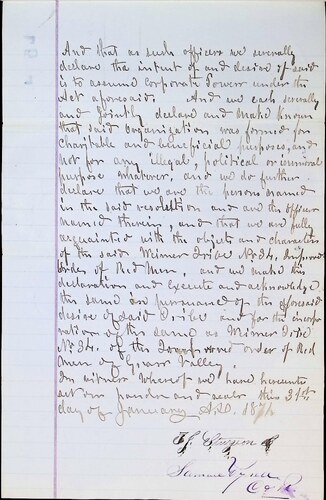 And that as such officers we severally
declare the intent of and desire of said
is to assume corporate Powers under the
Act aforesaid And we each severally
and Jointly declare and make known
that said organization was formed for
charitable and beneficial purposes, and
not for any illegal, political or immoral
purpose whatever, and we do further
declare that we are the person named
in the said resolution and are the officers
named therein, and that we are fully
acquainted with the objects and characters
of the said Tribe No 34. Improved
order of Red Men, and we make this
declaration, and execute and acknowledge
the same in pursuance of the aforesaid
desire of said Tribe and for the incorpo
ration of the same as Tribe
No 34. of the Improved order of Red
Men of Grass Valley
In witness Whereof we have hereunto
set our hands and seals this 31st
day of January A.D. 187